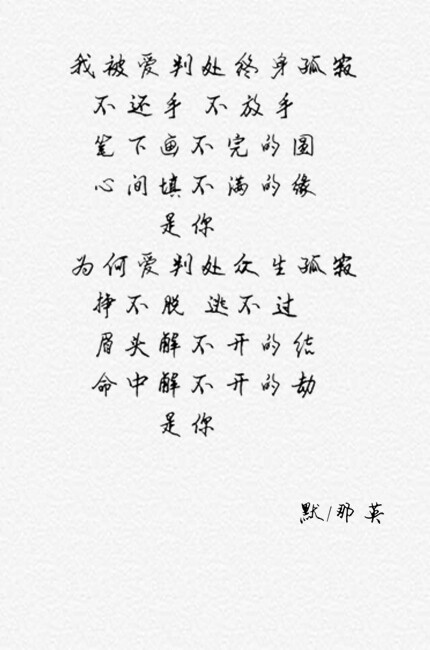 我被爱判处终身孤寂
不还手 不放手
笔下画不完的圆
心间填不满的缘
是你
为何爱判处众生孤寂
挣不脱 逃不过
眉头解不开的结
命中解不开的劫
是你
默/那英